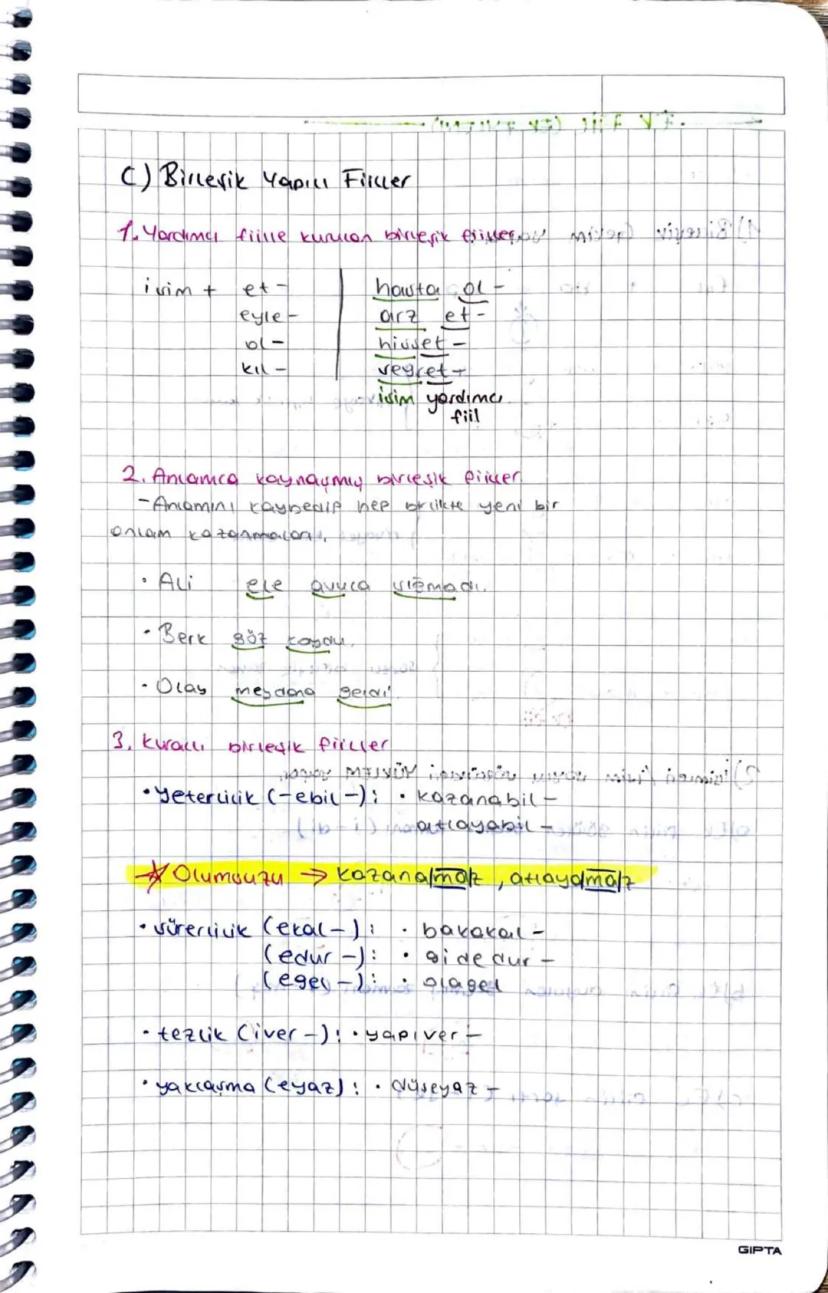 C) Birleşik Yapılı Fiiller
1. Yardımcı fiille kurulan birleşik fiiller
isim + et - hasta ol -
eyle - arz et -
ol - hisset -
kıl - seyret -
isim yardımcı
fiil
2. Anlamca kaynaşmış birleşik fiiller
- Anlamını kaybedip hep birlikte yeni bir
anlam kazanmaları.
• Ali ele avuca sığmadı.
• Berk göz koydu.
• Olay meydana geldi
3. Kurallı birleşik fiiller
• Yeterlilik (-ebil-): • kazanabil -
atlayabil -
Olumsuzu → kazana|ma|z, atlaya|ma|z
• sürerlilik (ekal -): • bakakal -
(edur -): • gidedur -
(egel -): • olagel
• tezlik (iver -): • yapıver -
• yaklaşma (eyaz): • düşeyaz -
GIPTA